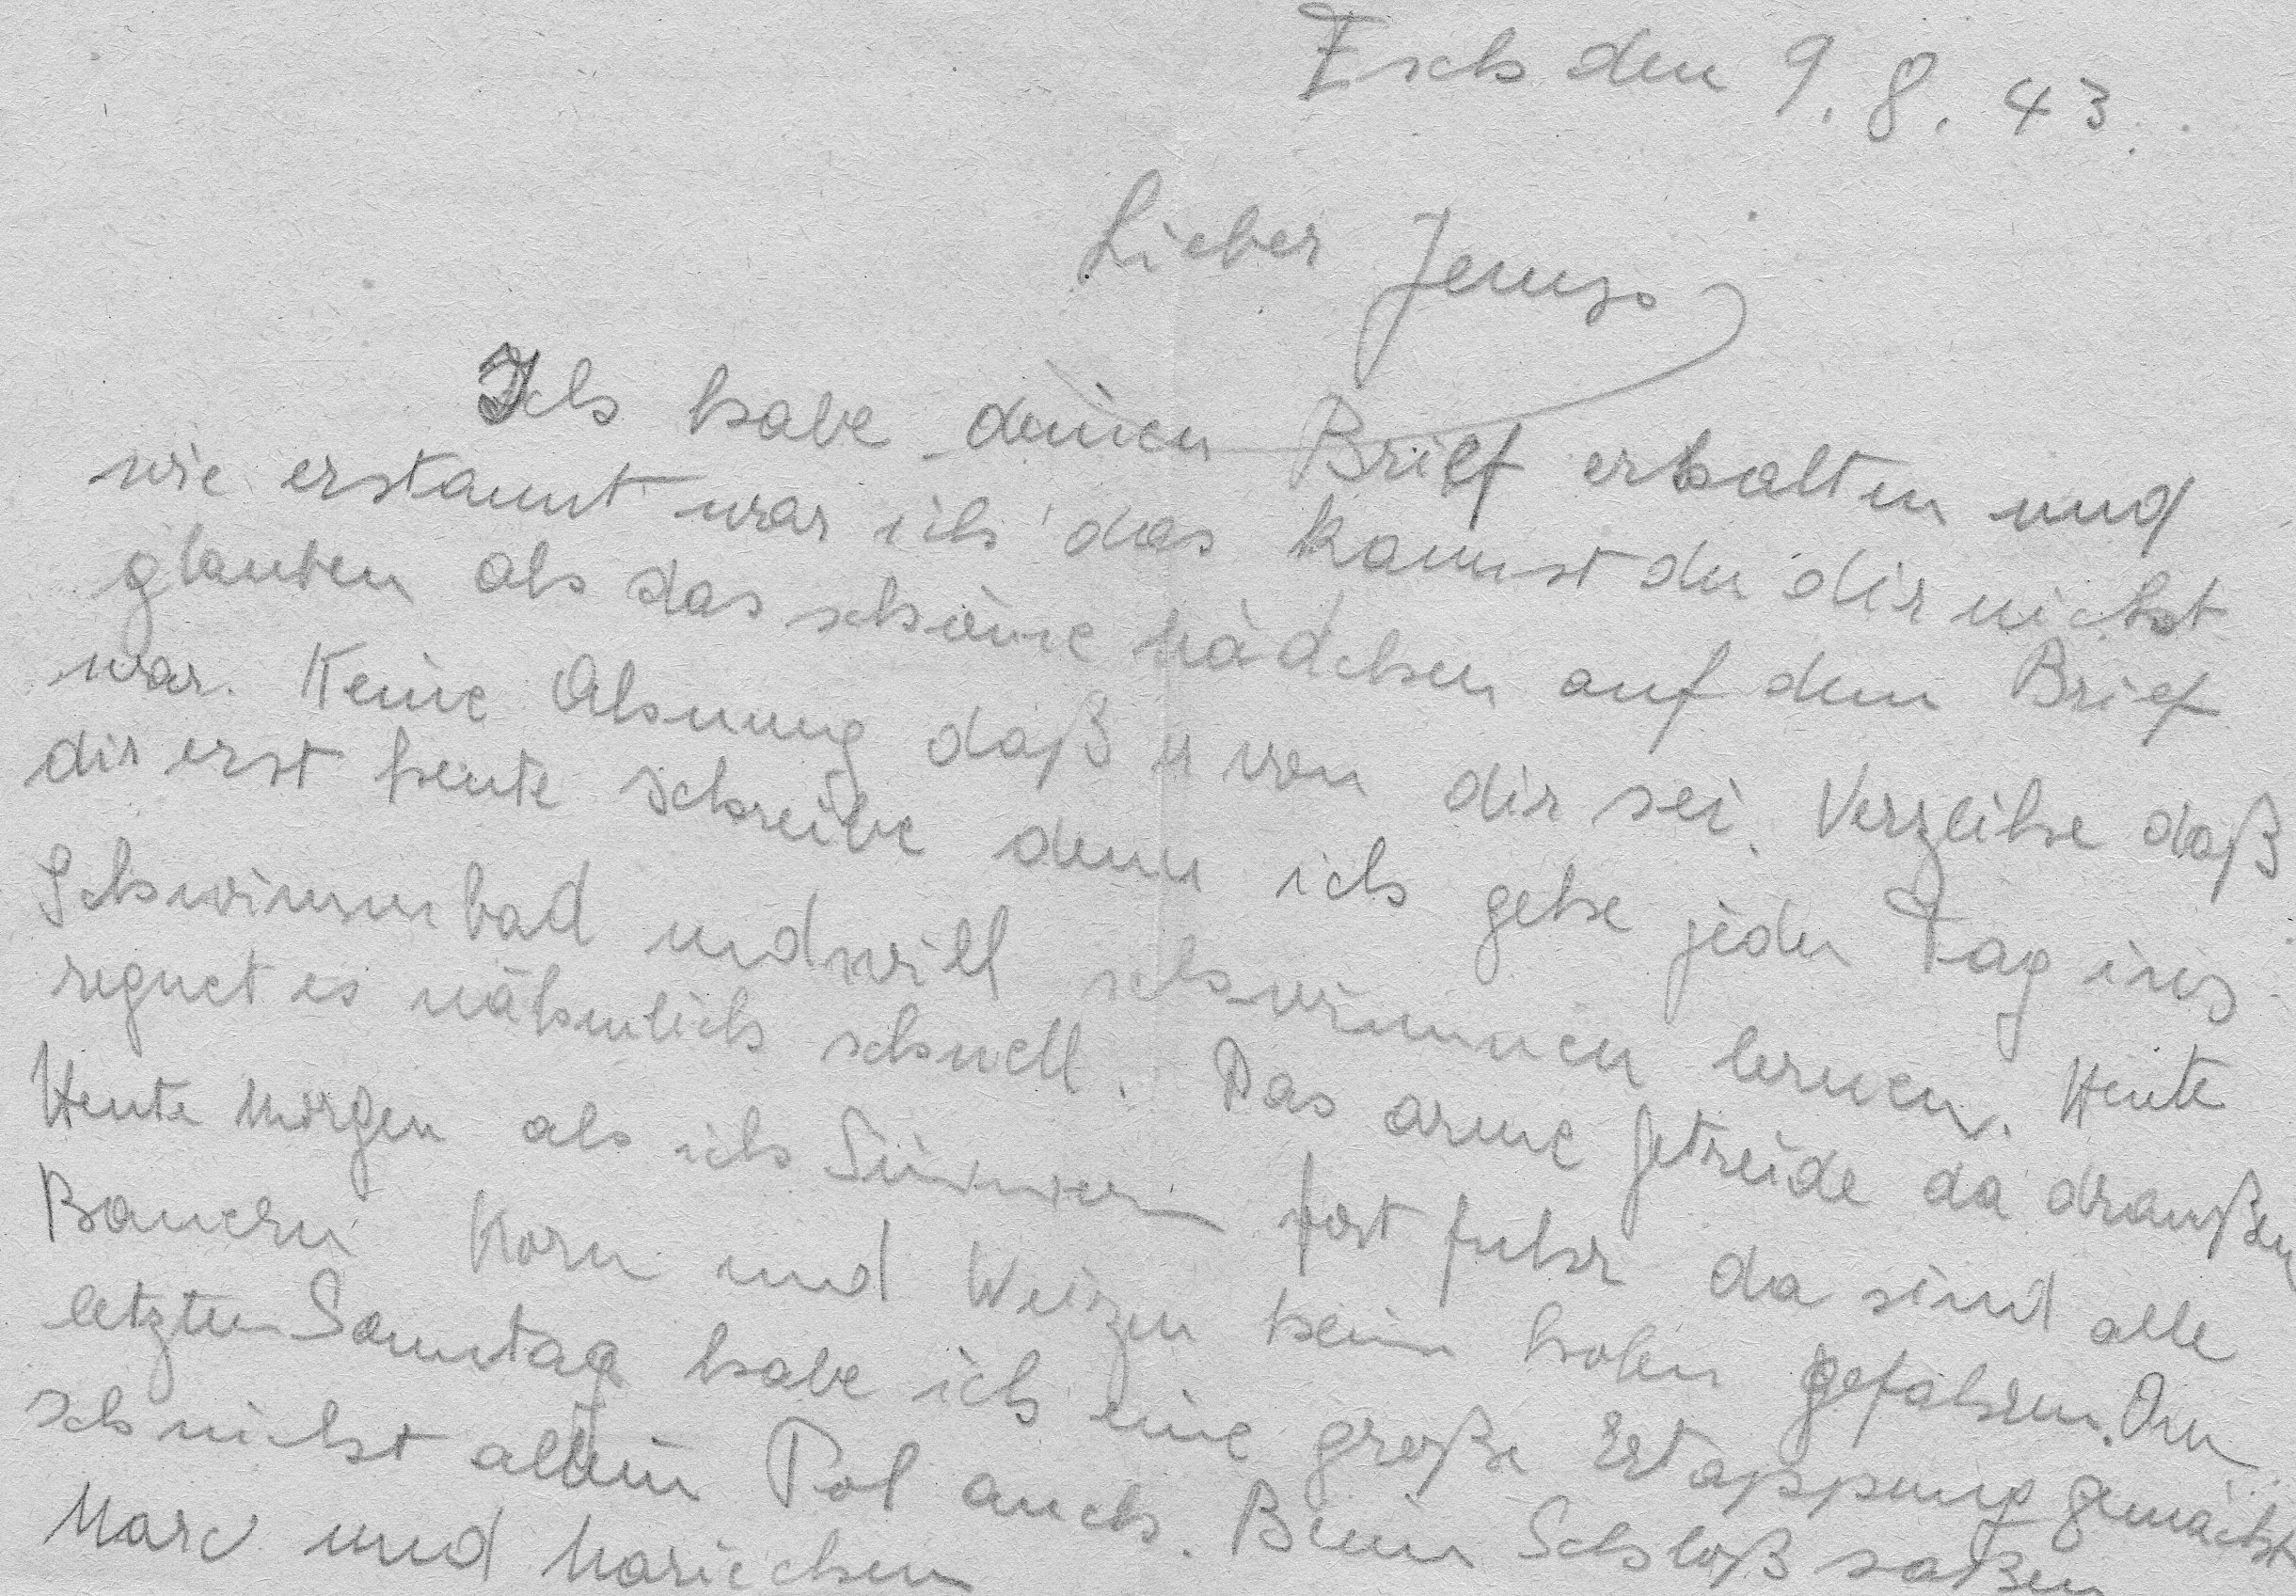 Esch den 9. 8. 43.
Lieber Jemps
Ich habe deinen Brief erhalten und
wie erstaunt war ich das kannst du dir nicht
glauben als das schöne Mädchen auf dem Brief
war. Keine Ahnung daß er von dir sei. Verzeihe daß
dir erst heute schreibe denn ich gehe jeden Tag ins
Schwimmbad und will schwimmen lernen. Heute
regnet es nähmlich schnell. Das arme Getreide da draußen
Heute Morgen als ich fort fuhr da sind alle
Bauern Korn und Weizen heim holen gefahren. Am
letzten Sonntag habe ich eine große Ertappung gemacht
Ich nicht allein Pol auch. Beim Schloß saßen
Marc und Mariechen